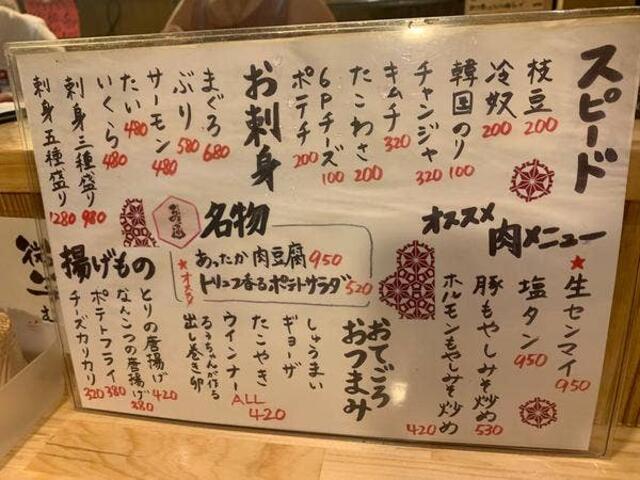 スピード
枝豆 200
冷奴 200
韓国のり 100
チャンジャ 320
キムチ 320
たこわさ 200
6Pチーズ 100
ポテチ 200
お刺身
まぐろ 680
ぶり 580
サーモン 480
たい 480
いくら 480
刺身三種盛り 980
刺身五種盛り 1280
オススメ
肉メニュー
★生センマイ 950
塩タン 950
豚もやしみそ炒め 530
ホルモンもやしみそ炒め 420
名物
あったか肉豆腐 950
★オススメ トリュフ香るポテトサラダ 520
おてごろ
おつまみ
しゅうまい
ギョーザ
たこやき
ウインナー
るぅちゃんが作る
出し巻き卵
ALL
420
揚げもの
とりの唐揚げ 420
なんこつの唐揚げ 380
ポテトフライ 380
チーズカリカリ 320